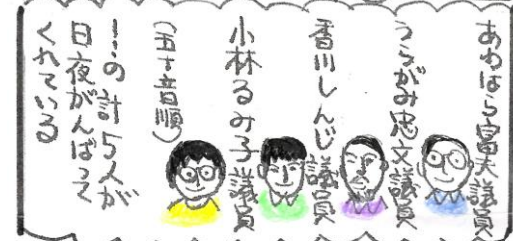 あわはら富夫議員
うらがみ忠文議員
香川しんじ議員
小林るみ子議員
（五十音順）
…の計5人が
日夜がんばって
くれている